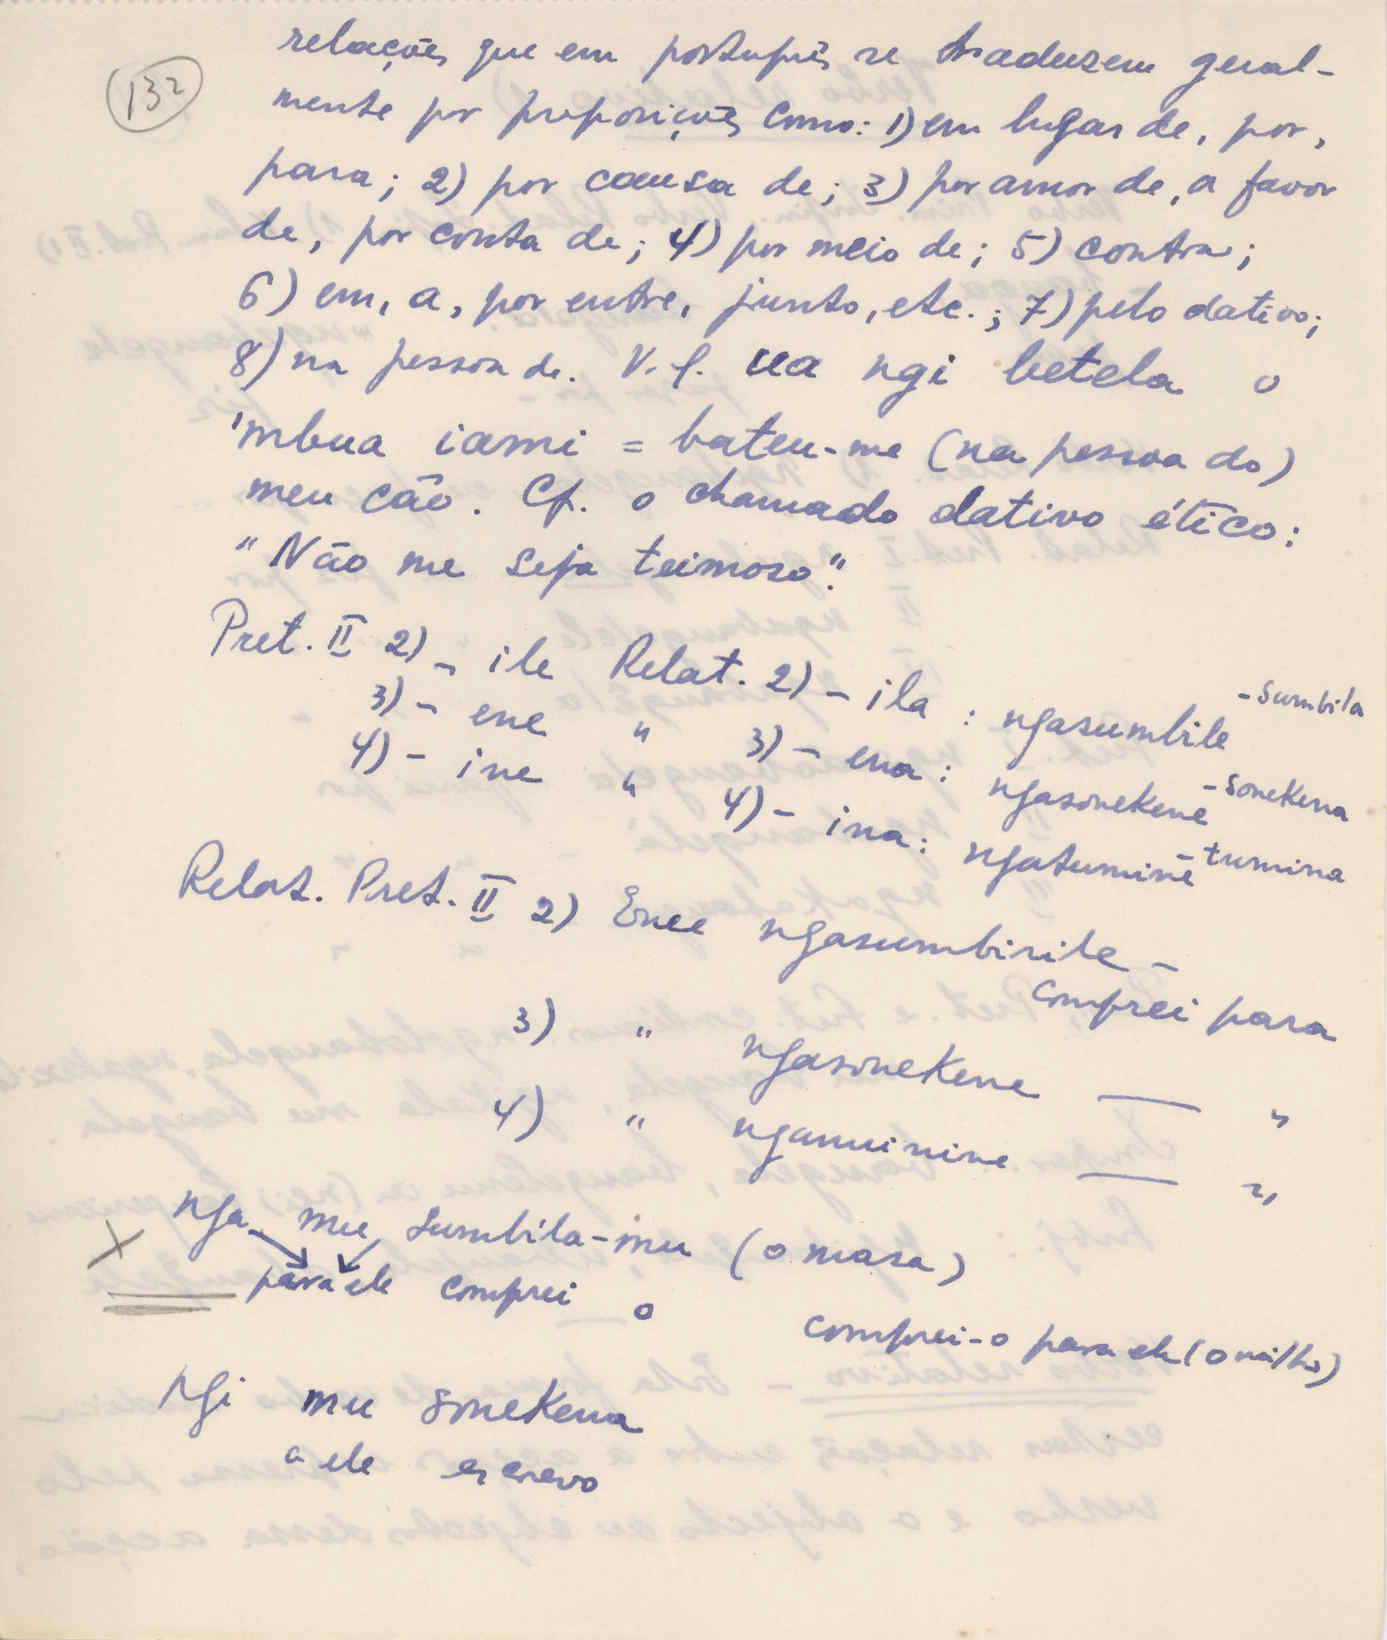 132
relações que em português se traduzem geral-
mente por preposições como: 1) em lugar de, por,
para; 2) por causa de; 3) por amor de, a favor
de, por conta de; 4) por meio de; 5) contra;
6) em, a, por entre, junto, etc.; 7) pelo dativo;
8) na pessoa de. V.g. ua ngi betela o
'mbua iami = bateu-me (na pessoa do)
meu cão. Cf. o chamado dativo ético:
"Não me seja teimoso".
Pret. II 2) - ile Relat. 2) - ila : ngasumbile - sumbila
3) - ene " 3) - ena : ngasonekene - sonekena
4) - ine " 4) - ina : ngatumine - tumina
Relat. Pret. II 2) Eme ngasumbirile -
comprei para
3) " ngasonekene — "
4) " nganuinine — "
X nga mu sumbila-mu (o masa)
para ele comprei o
comprei-o para ele (o milho)
ngi mu sonekena
a ele escrevo